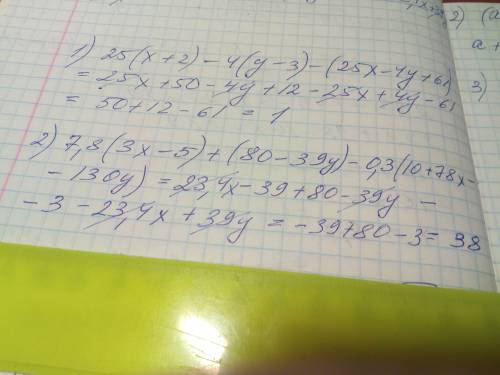 1) 25(x+2) - 4(y-3) - (25x-4y+61)
= 25x+50-4y+12-25x+4y-61
= 50+12-61 = 1
2) 7,8(3x-5)+(80-39y)-0,3(10+78x-
-130y) = 23,4x-39+80-39y -
-3-23,4x+39y = -39780-3= 38
2) (a
a+
3)